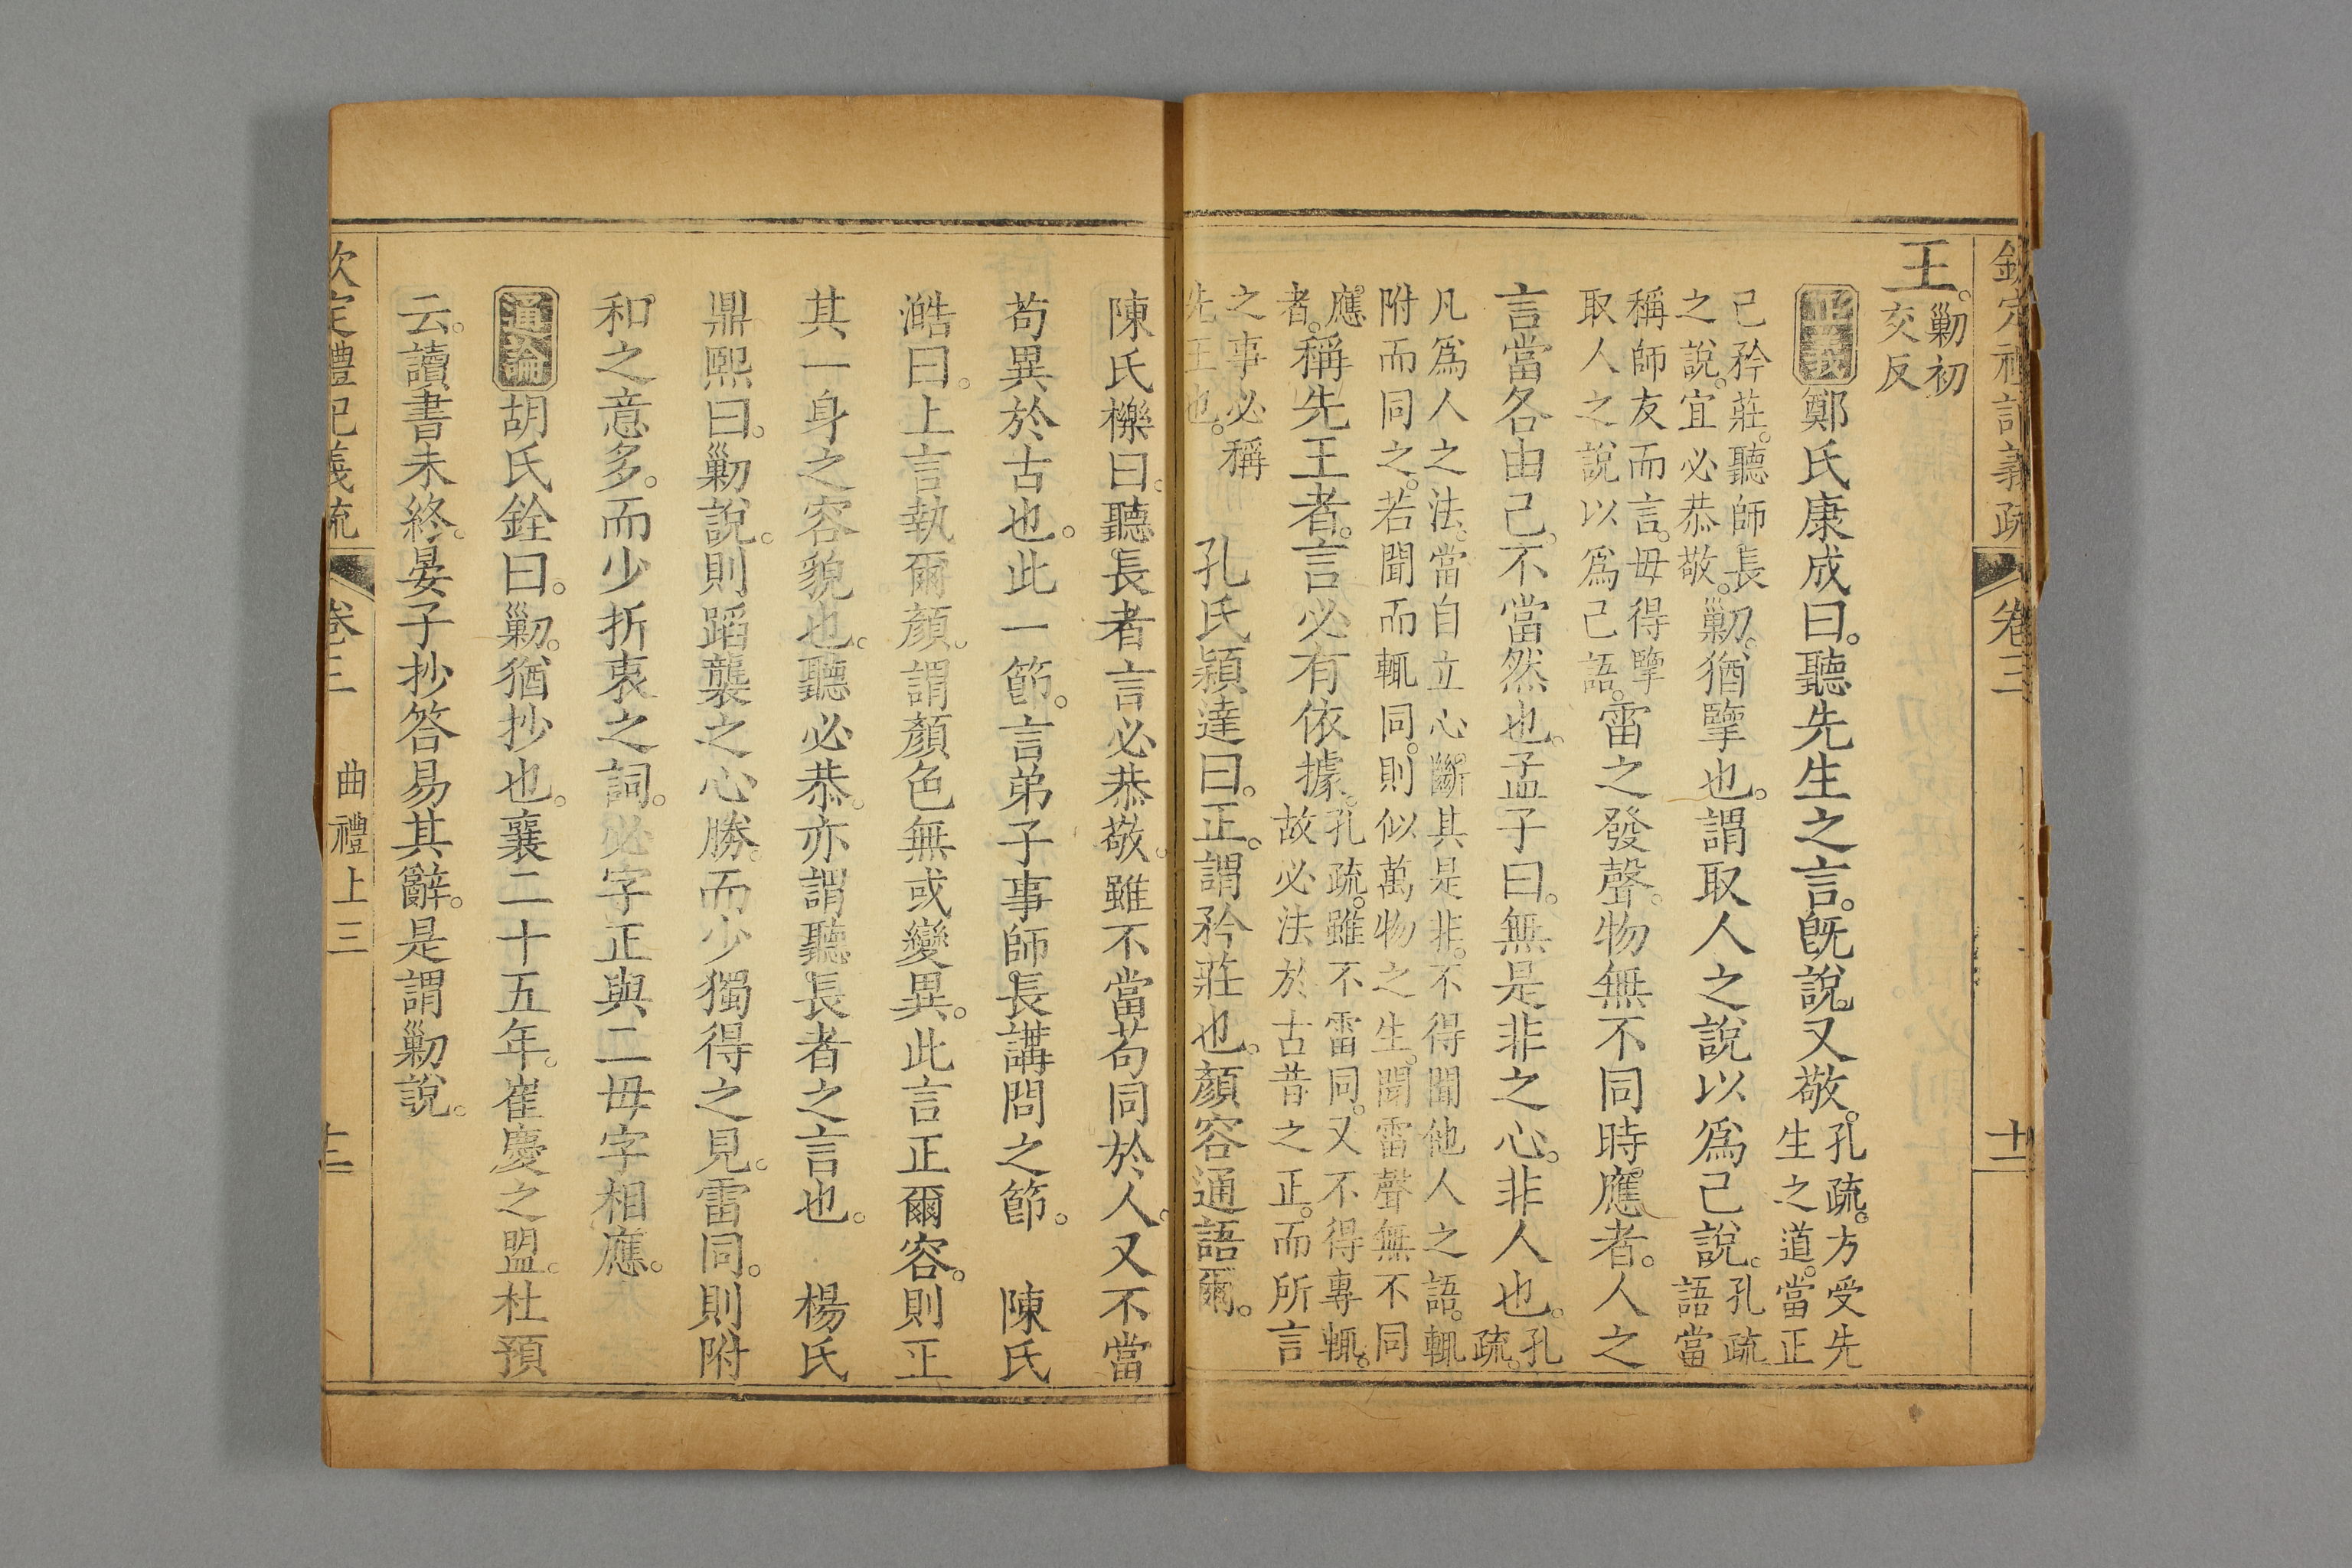 欽定禮記義疏 卷三
王。勦初
交反
正義 鄭氏康成曰。聽先生之言。旣說。又敬。孔疏。方受先
生之道。當正
己矜莊。聽師長
之說。宜必恭敬。勦。猶擥也。謂取人之說以爲己說。孔疏
語當
稱師友而言。毋得擥
取人之說以爲己語。雷之發聲。物無不同時應者。人之
言當各由己。不當然也。孟子曰。無是非之心。非人也。孔
疏。
凡爲人之法。當自立心。斷其是非。不得聞他人之語。輒
附而同之。若聞而輒同。則似萬物之生。聞雷聲無不同
應
者。稱先王者。言必有依據。孔疏。雖不雷同。又不得專輒。
故必法於古昔之正。而所言
之事必稱
先王也。孔氏穎達曰。正。謂矜莊也。顏容通語爾。
陳氏櫟曰。聽長者言必恭敬。雖不當苟同於人。又不當
苟異於古也。此一節。言弟子事師長講問之節。 陳氏
澔曰。上言執爾顏。謂顏色無或變異。此言正爾容。則正
其一身之容貌也。聽必恭。亦謂聽長者之言也。 楊氏
鼎熙曰。勦說。則蹈襲之心勝。而少獨得之見。雷同。則附
和之意多。而少折衷之詞。必字正與二毋字相應。
通論 胡氏銓曰。勦。猶抄也。襄二十五年。崔慶之盟。杜預
云。讀書未終。晏子抄答易其辭。是謂勦說。
欽定禮記義疏 卷三 曲禮上三